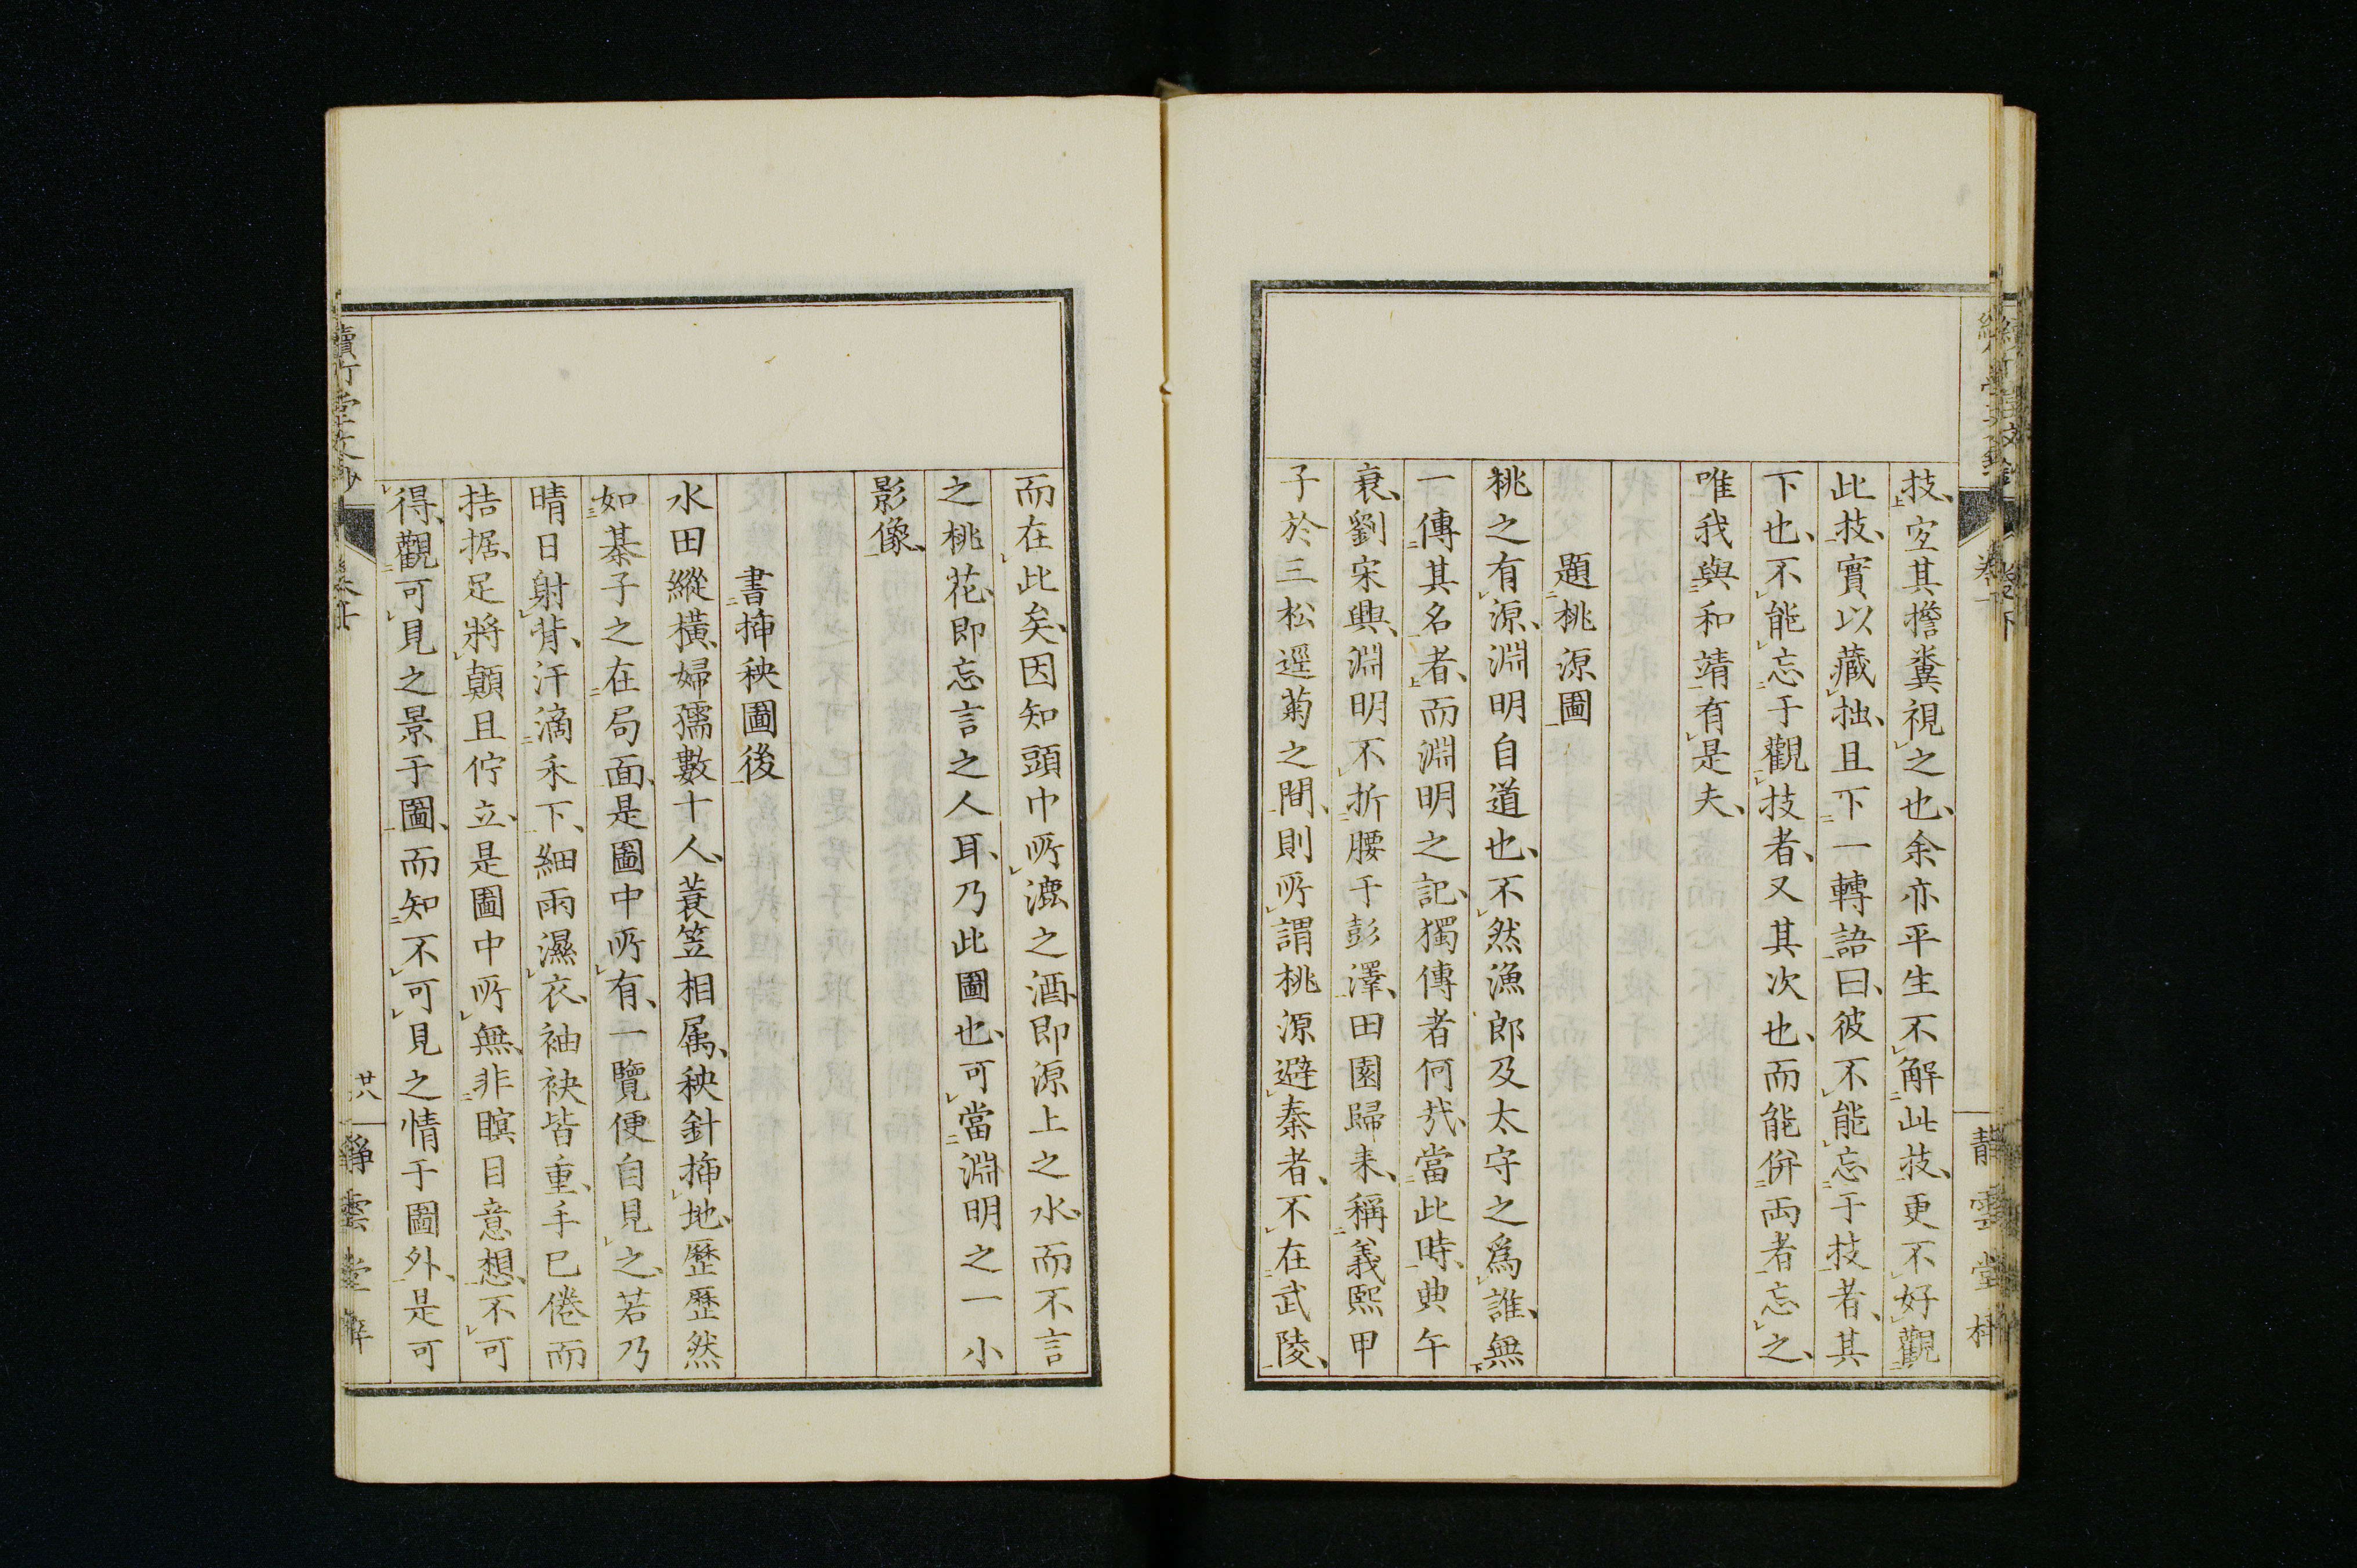 技、宜其擔糞視之也、余亦平生不解此技、更不好觀
此技、實以藏拙、且下一轉語曰、彼不能忘于技者、其
下也、不能忘于觀技者、又其次也、而能併兩者忘之、
唯我與和靖有是夫、
題桃源圖
桃之有源、淵明自道也、不然漁郎及太守之爲誰、無
一傳其名者、而淵明之記、獨傳者何哉、當此時、典午
衰、劉宋興、淵明不折腰于彭澤、田園歸来、稱義熙甲
子於三松逕菊之間、則所謂桃源避秦者、不在武陵、
而在此矣、因知頭巾所漉之酒、即源上之水、而不言
之桃花、即忘言之人耳、乃此圖也、可當淵明之一小
影像、
書插秧圖後
水田縱橫、婦孺數十人、蓑笠相属、秧針插地、歷歷然
如棊子之在局面、是圖中所有、一覽便自見之、若乃
晴日射背、汗滴禾下、細雨濕衣、袖袂皆重、手已倦而
拮据、足將顛且佇立、是圖中所無、非瞑目意想、不可
得、觀可見之景于圖、而知不可見之情于圖外、是可
廿八
靜雲堂